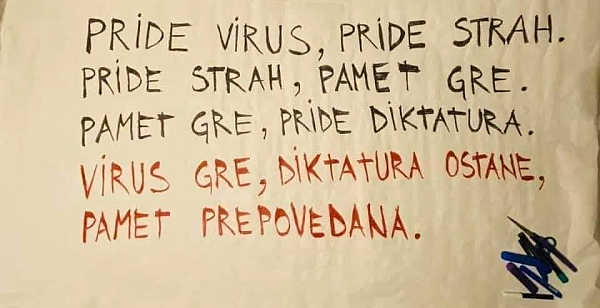 PRIDE VIRUS, PRIDE STRAH.
PRIDE STRAH, PAMET GRE.
PAMET GRE, PRIDE DIKTATURA.
VIRUS GRE, DIKTATURA OSTANE,
PAMET PREPOVEDANA.